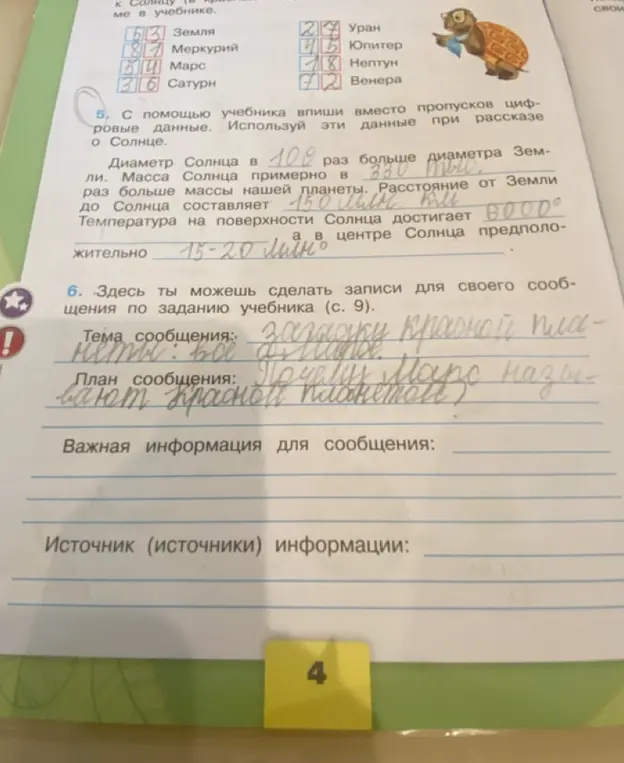 ме в учебнике.
6 3 Земля
8 1 Меркурий
5 4 Марс
3 6 Сатурн
2 7 Уран
4 5 Юпитер
1 8 Нептун
7 2 Венера
5. С помощью учебника впиши вместо пропусков циф-
ровые данные. Используй эти данные при рассказе
о Солнце.
Диаметр Солнца в 109 раз больше диаметра Зем-
ли. Масса Солнца примерно в 330 тыс.
раз больше массы нашей планеты. Расстояние от Земли
до Солнца составляет 150 млн км
Температура на поверхности Солнца достигает 6000°
а в центре Солнца предполо-
жительно 15-20 млн° .
6. Здесь ты можешь сделать записи для своего сооб-
щения по заданию учебника (с. 9).
Тема сообщения: загадки красной пла-
неты: все о Марсе.
План сообщения: Почему Марс назы-
вают красной планетой?
Важная информация для сообщения:
Источник (источники) информации:
4